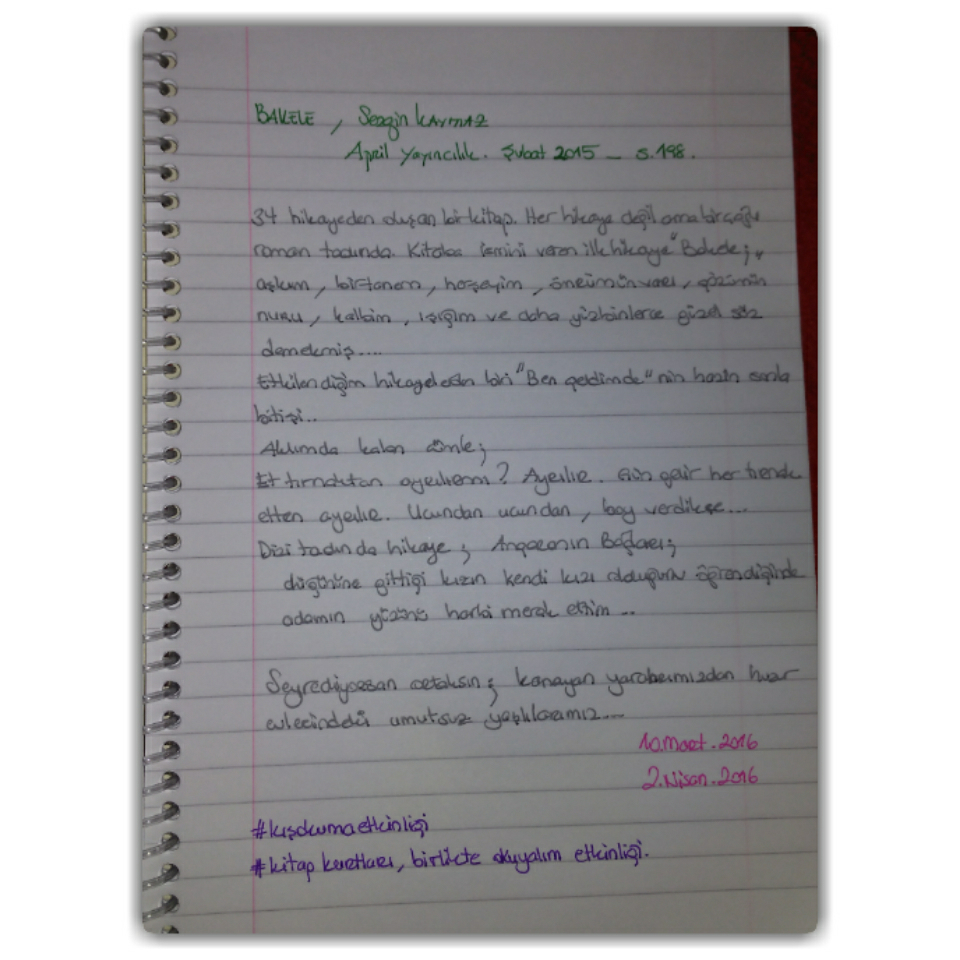 BAKELE, Sezgin KAYMAZ
April Yayıncılık. Şubat 2015 - s.198.
34 hikayeden oluşan bir kitap. Her hikaye değil ama birçoğu
roman tadında. Kitaba ismini veren ilk hikaye "Bakele;"
aşkım, birtanem, herşeyim, ömrümün varı, gözümün
nuru, kalbim, ışığım ve daha yüzbinlerce güzel söz
demekmiş....
Etkilendiğim hikayelerden biri "Ben geldimde" nin hazin sonla
bitişi..
Aklımda kalan cümle;
Et tırnaktan ayrılırmı? Ayrılır. Gün gelir her tırnak
etten ayrılır. Ucundan ucundan, boy verdikçe...
Dizi tadında hikaye; Angaranın Bağları;
düğününe gittiği kızın kendi kızı olduğunu öğrendiğinde
adamın yüzünü merak ettim..
Seyrediyosan cetaksın; kanayan yaralarımızdan huzur
evlerindeki umutsuz yaşlılarımız....
10.Mart.2016
2.Nisan.2016
#kışokumaetkinliği
#kitap kurtları, birlikte okuyalım etkinliği.